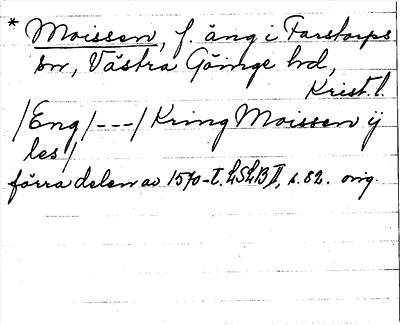 * Moissen, f. äng i Farstorps
sn, Västra Göinge hd,
Krist. l.
/Eng/---/ Kring Moissen ij
les/
förra delen av 1570-t. LSLB II, s. 82. orig.